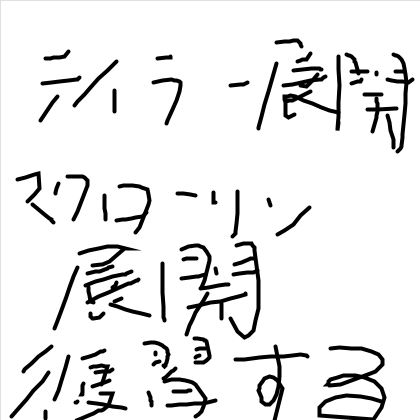 テイラー展開
マクローリン
展開
復習する